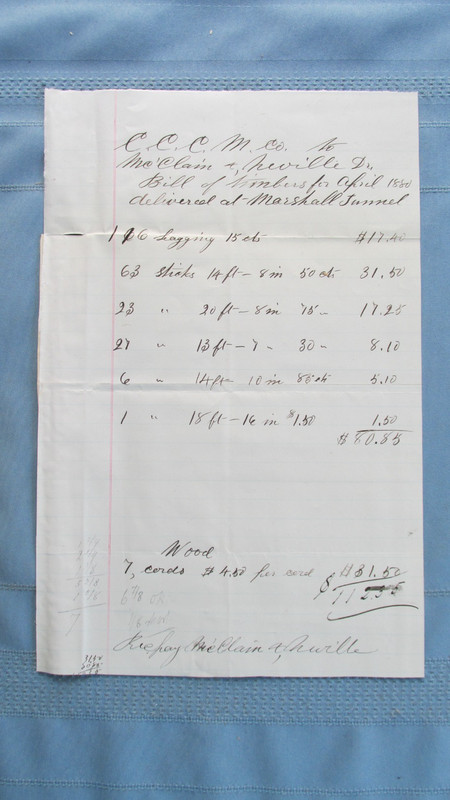 C. C. C. M. Co. to
McClain & Neville Dr,
Bill of timbers for April 1880
delivered at Marshall Tunnel
116 Lagging 15 cts $17.40
63 sticks 14 ft - 8 in 50 cts 31.50
23 " 20 ft - 8 in 75 " 17.25
27 " 13 ft - 7 " 30 " 8.10
6 " 14 ft 10 in 85 cts 5.10
1 " 18 ft - 16 in $1.50 1.50
$80.85
Wood
7, cords $4.50 per cord $31.50
$ 11
McClain & Neville